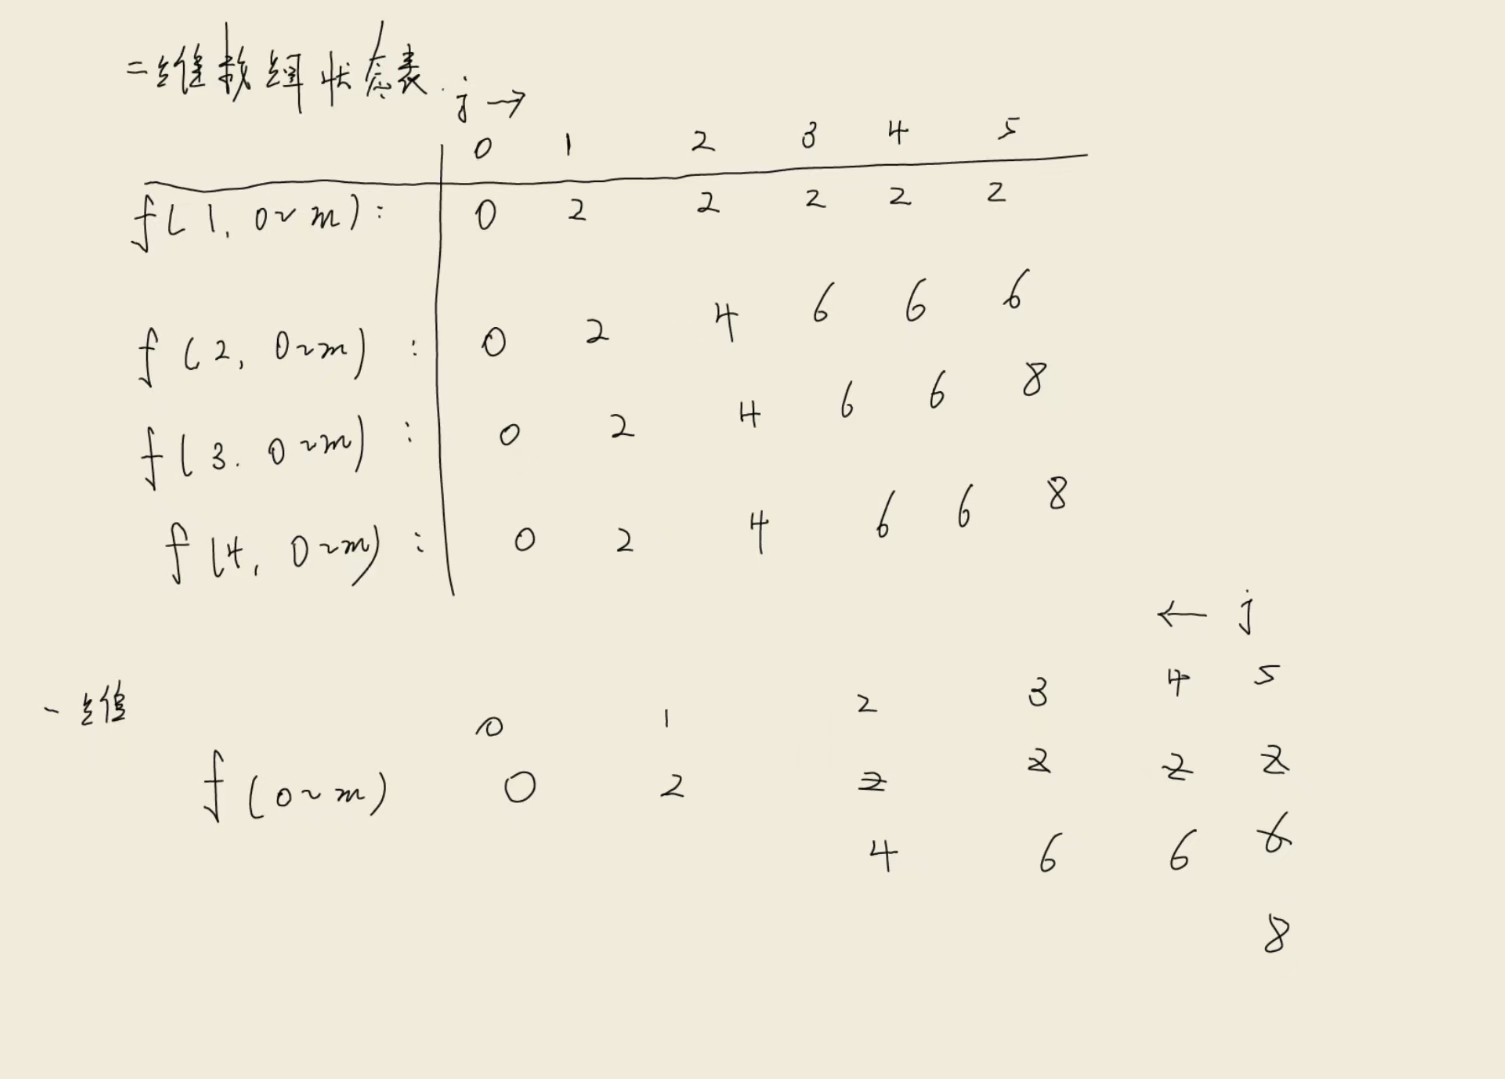 二维数组状态表. j →
0 1 2 3 4 5
f(1, 0~m): 0 2 2 2 2 2
f(2, 0~m): 0 2 4 6 6 6
f(3. 0~m): 0 2 4 6 6 8
f(4, 0~m): 0 2 4 6 6 8
← j
一维
0 1 2 3 4 5
f(0~m) 0 2 2 2 2 2
4 6 6 6
8